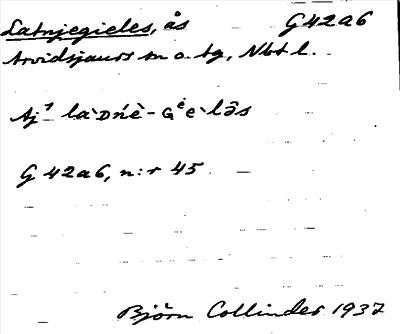 Latnjegieles, ås G42a6
Arvidsjaurs sn o. tg, Nbtl.
Aj⁷ la`ᴅńè-ɢėe`lə̑s
G 42a6, n:r 45
Björn Collinder 1937